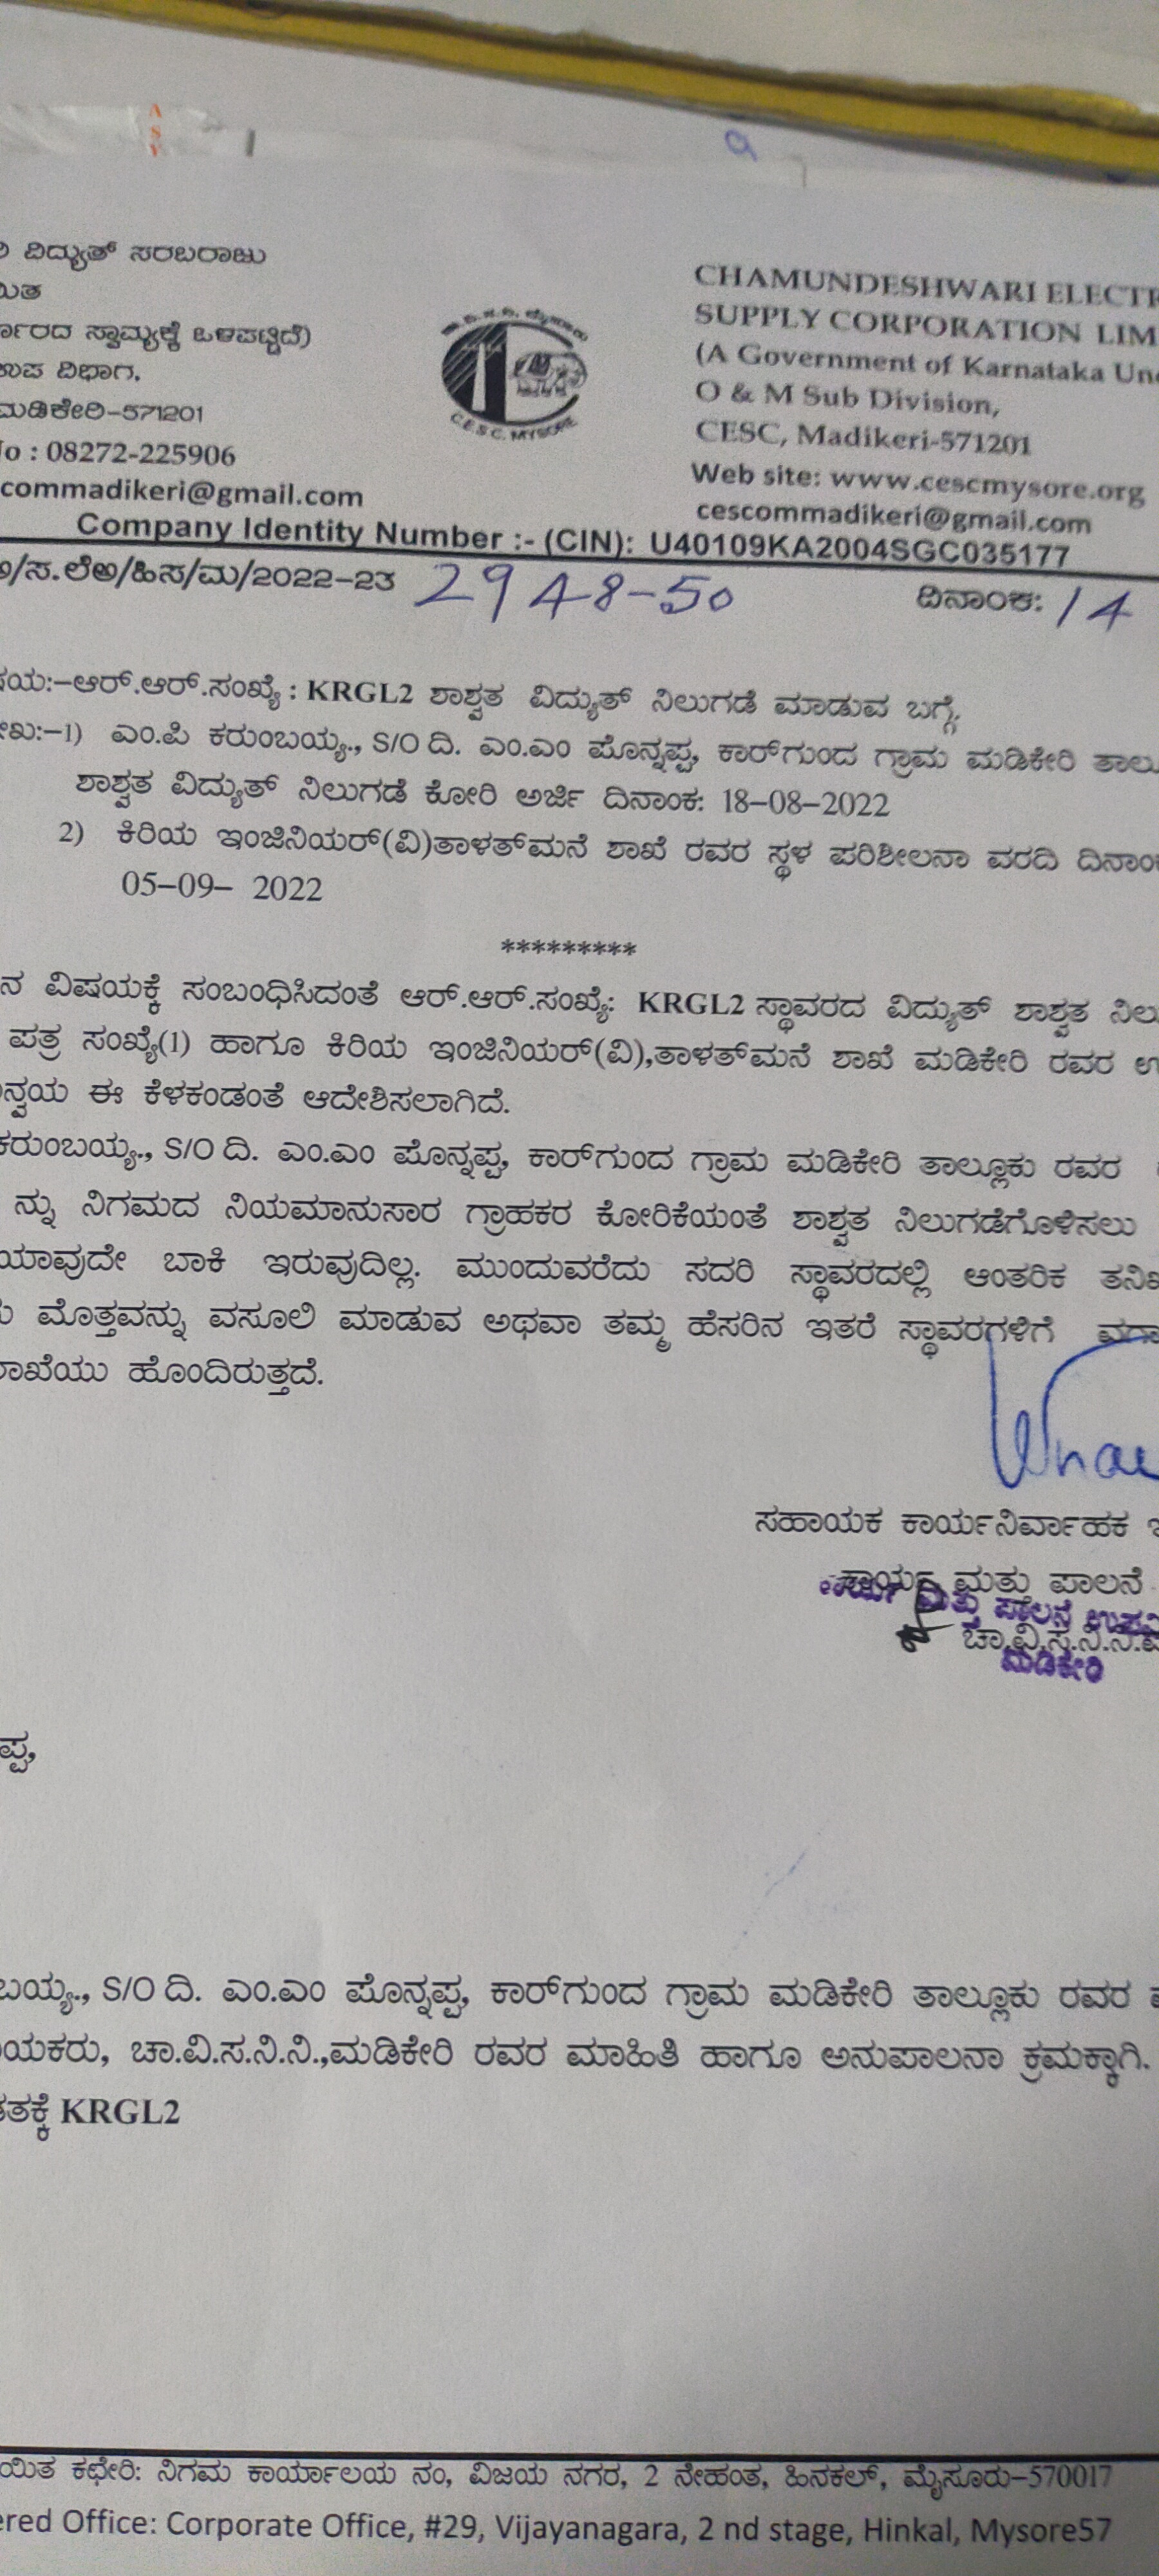 A
S
ವಿದ್ಯುತ್ ಸರಬರಾಜು
ಮಿತ
ರ್ಕಾರದ ಸ್ವಾಮ್ಯಕ್ಕೆ ಒಳಪಟ್ಟಿದೆ)
ಉಪ ವಿಭಾಗ.
ಮಡಿಕೇರಿ-571201
No : 08272-225906
commadikeri@gmail.com
C.E.S.C. MYSORE
CHAMUNDESHWARI ELECTR
SUPPLY CORPORATION LIM
(A Government of Karnataka Und
O & M Sub Division,
CESC, Madikeri-571201
Web site: www.cescmysore.org
cescommadikeri@gmail.com
Company Identity Number :- (CIN): U40109KA2004SGC035177
/ಸ.ಲೆಅ/ಹಿಸ/ಮ/2022-23 2948-50 ದಿನಾಂಕ: 14
ಷಯ:-ಆರ್.ಆರ್.ಸಂಖ್ಯೆ : KRGL2 ಶಾಶ್ವತ ವಿದ್ಯುತ್ ನಿಲುಗಡೆ ಮಾಡುವ ಬಗ್ಗೆ.
ೇಖ:-1) ಎಂ.ಪಿ ಕರುಂಬಯ್ಯ., S/O ದಿ. ಎಂ.ಎಂ ಪೊನ್ನಪ್ಪ, ಕಾರ್‌ಗುಂದ ಗ್ರಾಮ ಮಡಿಕೇರಿ ತಾಲ್ಲೂ
ಶಾಶ್ವತ ವಿದ್ಯುತ್ ನಿಲುಗಡೆ ಕೋರಿ ಅರ್ಜಿ ದಿನಾಂಕ: 18-08-2022
2) ಕಿರಿಯ ಇಂಜಿನಿಯರ್(ವಿ)ತಾಳತ್‌ಮನೆ ಶಾಖೆ ರವರ ಸ್ಥಳ ಪರಿಶೀಲನಾ ವರದಿ ದಿನಾಂಕ
05-09- 2022
*********
ನ ವಿಷಯಕ್ಕೆ ಸಂಬಂಧಿಸಿದಂತೆ ಆರ್.ಆರ್.ಸಂಖ್ಯೆ: KRGL2 ಸ್ಥಾವರದ ವಿದ್ಯುತ್ ಶಾಶ್ವತ ನಿಲು
ಪತ್ರ ಸಂಖ್ಯೆ(1) ಹಾಗೂ ಕಿರಿಯ ಇಂಜಿನಿಯರ್(ವಿ),ತಾಳತ್‌ಮನೆ ಶಾಖೆ ಮಡಿಕೇರಿ ರವರ ಉ
ನ್ವಯ ಈ ಕೆಳಕಂಡಂತೆ ಆದೇಶಿಸಲಾಗಿದೆ.
ಕರುಂಬಯ್ಯ., S/O ದಿ. ಎಂ.ಎಂ ಪೊನ್ನಪ್ಪ, ಕಾರ್‌ಗುಂದ ಗ್ರಾಮ ಮಡಿಕೇರಿ ತಾಲ್ಲೂಕು ರವರ
ನ್ನು ನಿಗಮದ ನಿಯಮಾನುಸಾರ ಗ್ರಾಹಕರ ಕೋರಿಕೆಯಂತೆ ಶಾಶ್ವತ ನಿಲುಗಡೆಗೊಳಿಸಲು
ಯಾವುದೇ ಬಾಕಿ ಇರುವುದಿಲ್ಲ. ಮುಂದುವರೆದು ಸದರಿ ಸ್ಥಾವರದಲ್ಲಿ ಆಂತರಿಕ ತನಿಖ
ಮೊತ್ತವನ್ನು ವಸೂಲಿ ಮಾಡುವ ಅಥವಾ ತಮ್ಮ ಹೆಸರಿನ ಇತರೆ ಸ್ಥಾವರಗಳಿಗೆ ವರ್ಗಾ
ಶಾಖೆಯು ಹೊಂದಿರುತ್ತದೆ.
ಸಹಾಯಕ ಕಾರ್ಯನಿರ್ವಾಹಕ ಇ
ಕಾರ್ಯ ಮತ್ತು ಪಾಲನೆ
ಕಾರ್ಯ ಮತ್ತು ಪಾಲನೆ ಉಪವಿ
ಚಾ.ವಿ.ಸ.ನಿ.ನಿ.
ಮಡಿಕೇರಿ
ಪ್ಪ,
ಬಯ್ಯ., S/O ದಿ. ಎಂ.ಎಂ ಪೊನ್ನಪ್ಪ, ಕಾರ್‌ಗುಂದ ಗ್ರಾಮ ಮಡಿಕೇರಿ ತಾಲ್ಲೂಕು ರವರ
ಯಕರು, ಚಾ.ವಿ.ಸ.ನಿ.ನಿ.,ಮಡಿಕೇರಿ ರವರ ಮಾಹಿತಿ ಹಾಗೂ ಅನುಪಾಲನಾ ಕ್ರಮಕ್ಕಾಗಿ.
ತಕ್ಕೆ KRGL2
ಯಿತ ಕಛೇರಿ: ನಿಗಮ ಕಾರ್ಯಾಲಯ ನಂ, ವಿಜಯ ನಗರ, 2 ನೇಹಂತ, ಹಿನಕಲ್, ಮೈಸೂರು-570017
ered Office: Corporate Office, #29, Vijayanagara, 2 nd stage, Hinkal, Mysore57